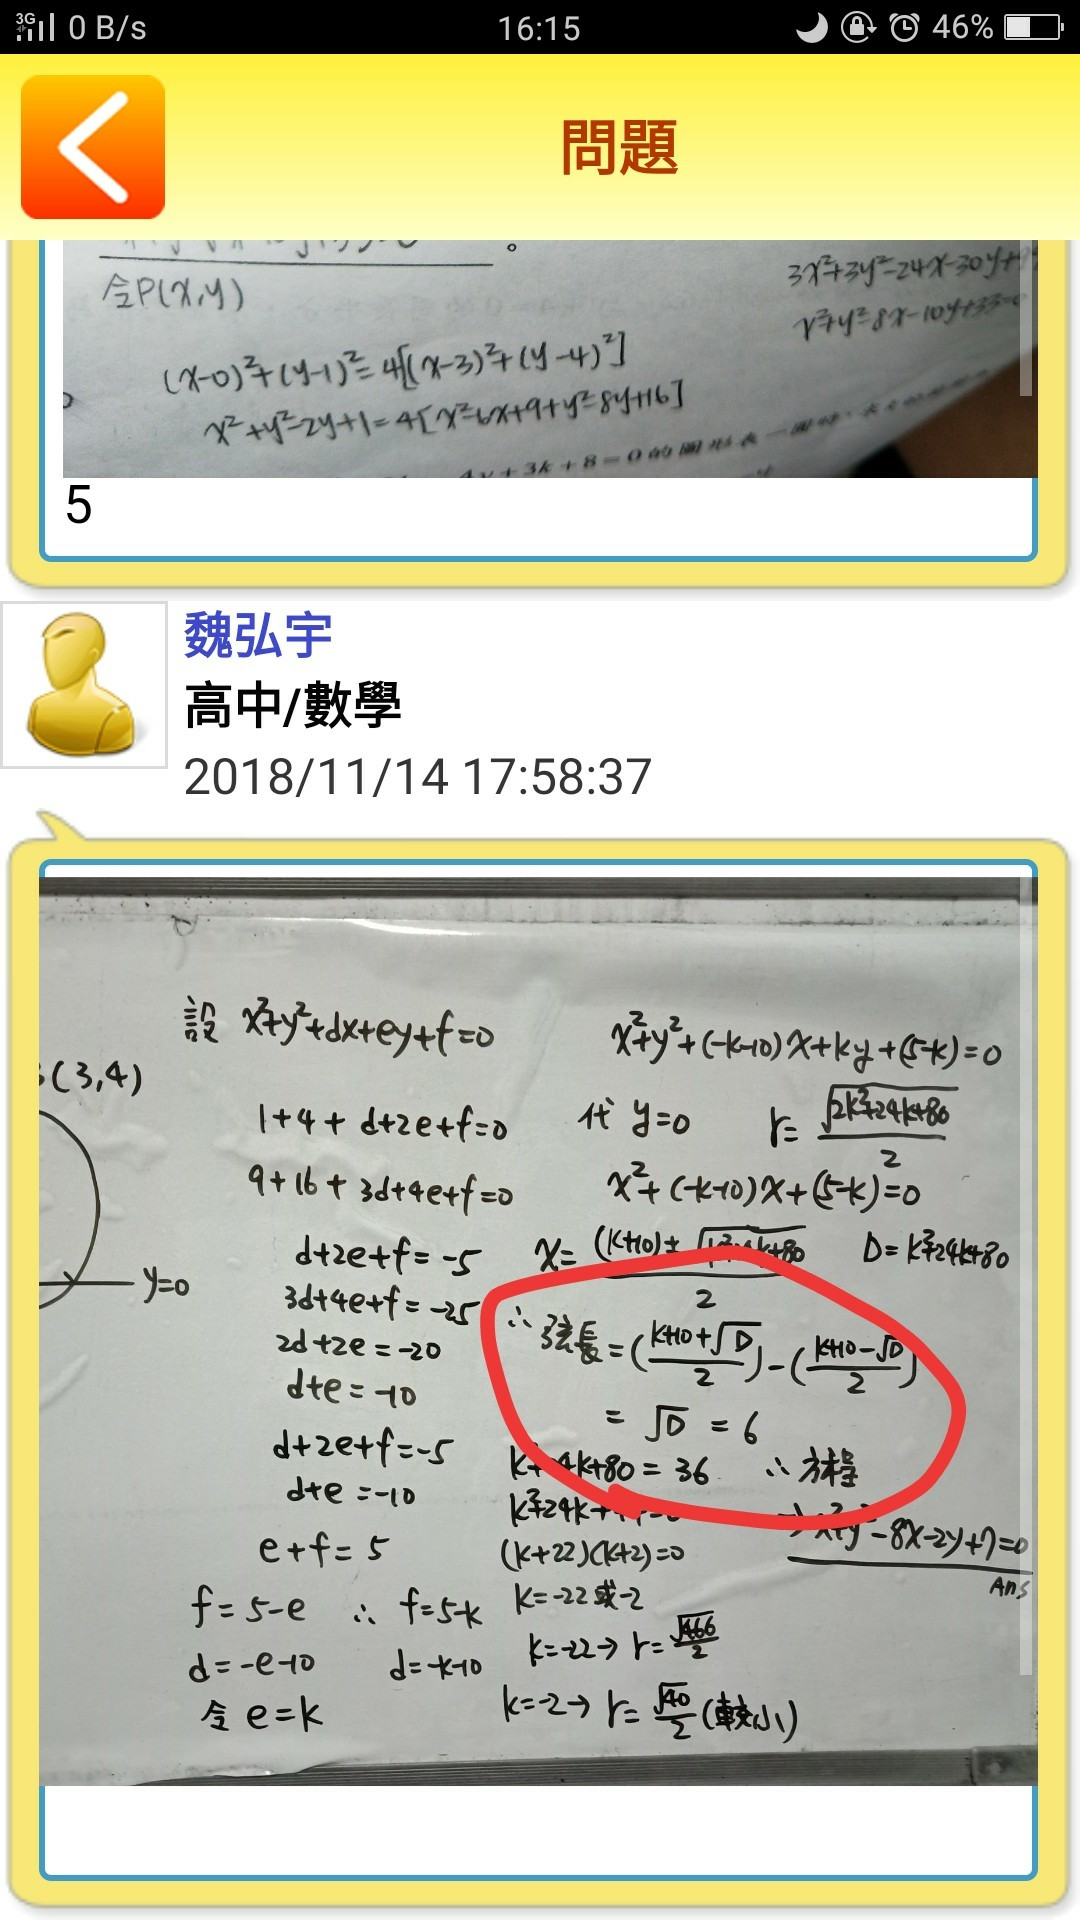 3G 0 B/s 16:15 46%
問題
令P(x,y)
(x-0)²+(y-1)²=4[(x-3)²+(y-4)²]
x²+y²-2y+1=4[x²-6x+9+y²-8y+16]
3x²+3y²-24x-30y+9
x²+y²-8x-10y+33=0
4y+3k+8=0的圖形表一圓時
5
魏弘宇
高中/數學
2018/11/14 17:58:37
(3,4)
y=0
設 x²+y²+dx+ey+f=0
1+4+d+2e+f=0
9+16+3d+4e+f=0
d+2e+f=-5
3d+4e+f=-25
2d+2e=-20
d+e=-10
d+2e+f=-5
d+e=-10
e+f=5
f=5-e ∴ f=5-k
d=-e-10 d=-k-10
令 e=k
x²+y²+(-k-10)x+ky+(5-k)=0
代 y=0 r=√(2k²+24k+80)/2
x²+(-k-10)x+(5-k)=0
x=((k+10)±√(k²+24k+80))/2 D=k²+24k+80
∴弦長=((k+10+√D)/2)-((k+10-√D)/2)
=√D=6
k²+24k+80=36 ∴方程
k²+24k+44=0 → x²+y²-8x-2y+7=0
(k+22)(k+2)=0 Ans
k=-22或-2
k=-22→r=√466/2
k=-2→r=√40/2(較小)